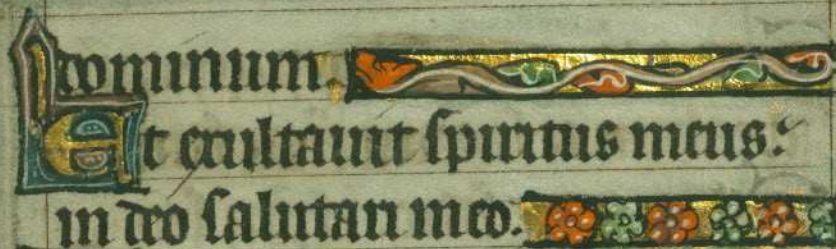 dominum.
Et exultauit spiritus meus:
in deo salutari meo.